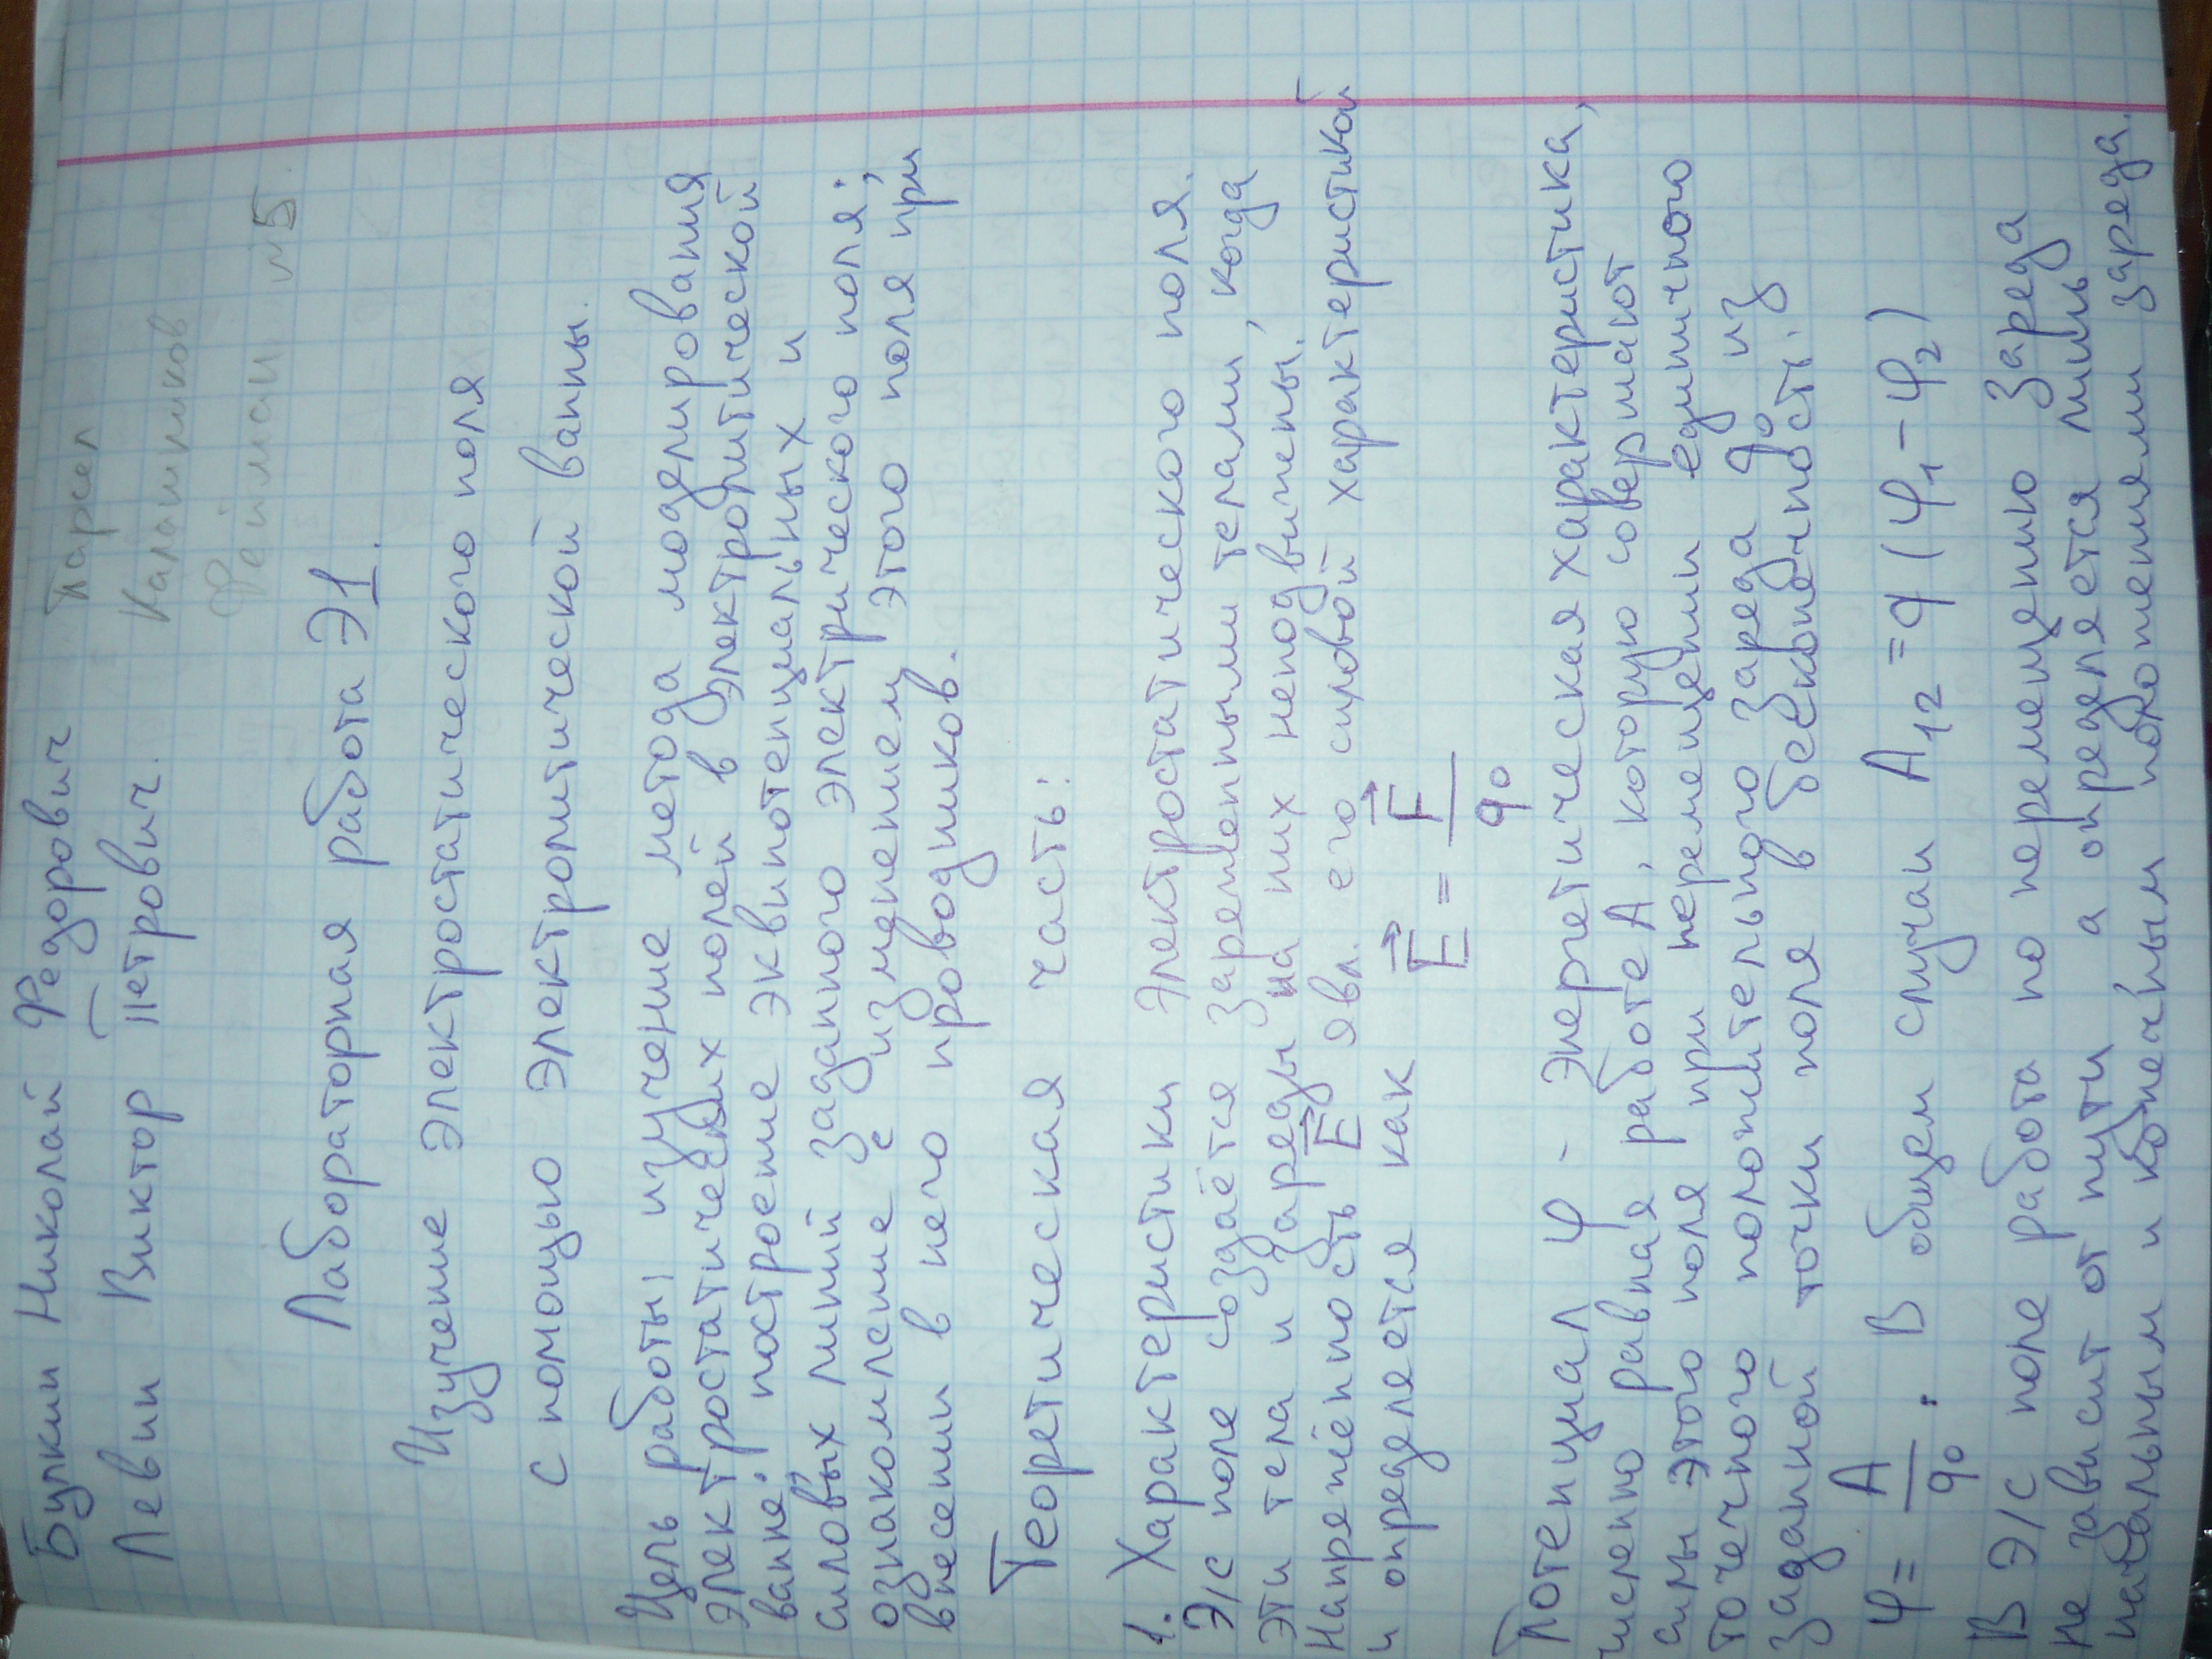 Булкин Николай Федорович Парсел
Левин Виктор Петрович. Калашников
Фейман №5.
Лабораторная работа Э1.
Изучение электростатического поля
с помощью электролитической ванны.
Цель работы: изучение метода моделирования
электростатических полей в электролитической
ванне; построение эквипотенциальных и
силовых линий заданного электрического поля;
ознакомление с изменением этого поля при
внесении в него проводников.
Теоретическая часть:
1. Характеристики электростатического поля.
Э/с поле создаётся заряженными телами, когда
эти тела и заряды на них неподвижены.
Напряжённость E⃗ явл. его силовой характеристикой
и определяется как E⃗ = F⃗ / q₀
Потенциал φ - энергетическая характеристика,
численно равная работе A, которую совершают
силы этого поля при перемещении единичного
точечного положительного заряда q₀ из
заданной точки поля в бесконечность.
φ = A / q₀. В общем случаи A₁₂ = q (φ₁ - φ₂)
В Э/с поле работа по перемещению заряда
не зависит от пути, а определяется лишь
начальным и конечным положениями заряда.